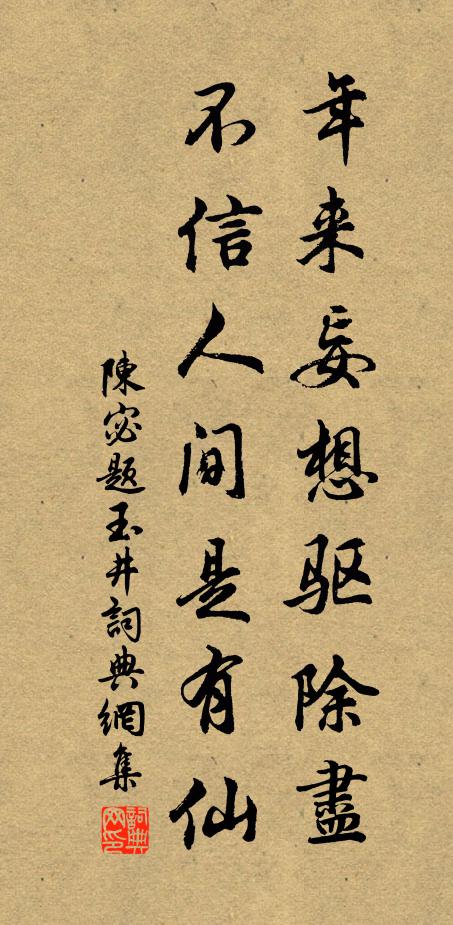 年来妄想驱除盡
不信人间是有仙
陳宓题玉井詞典網集
詞典網印